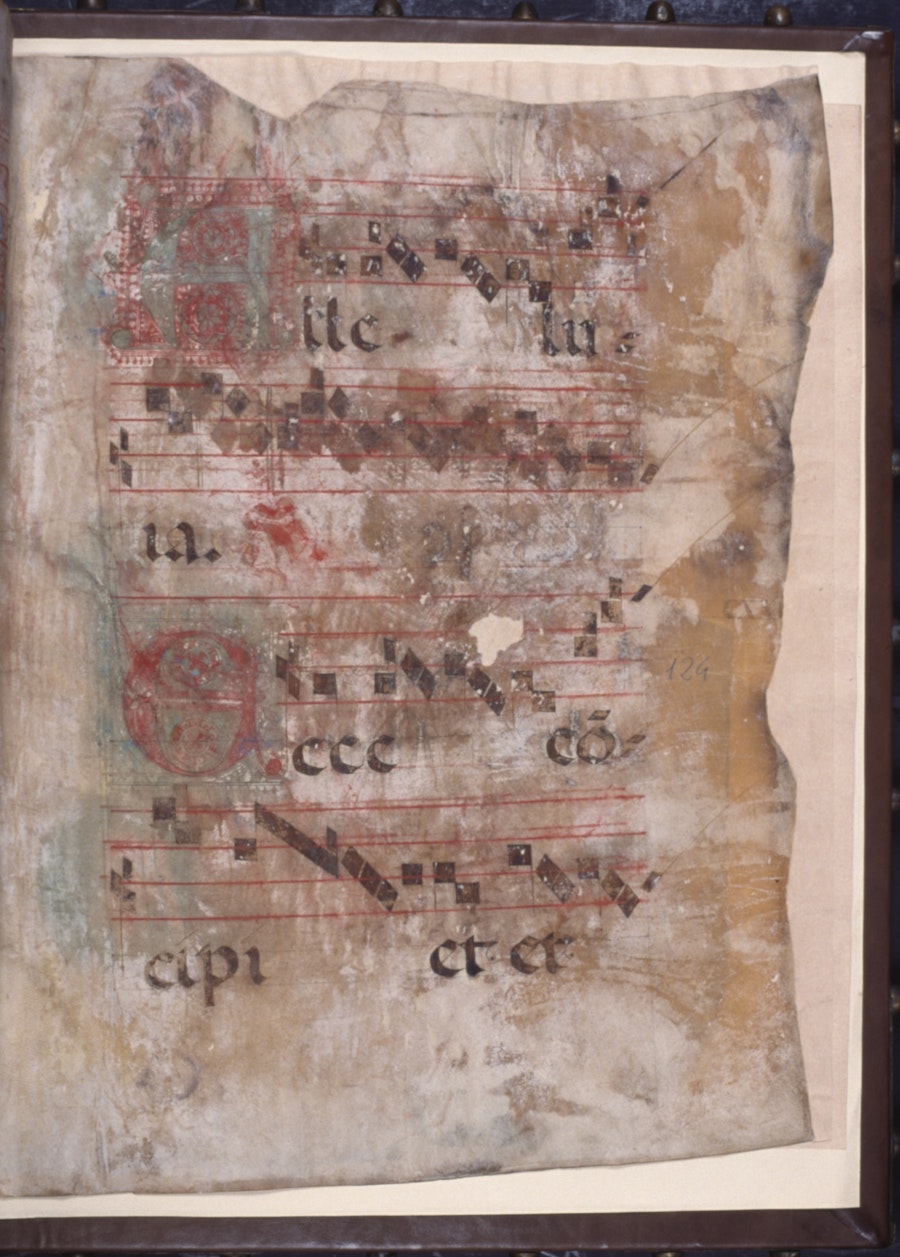 Alle- lu-
ia.
Ecce cō-
cipi et et
124